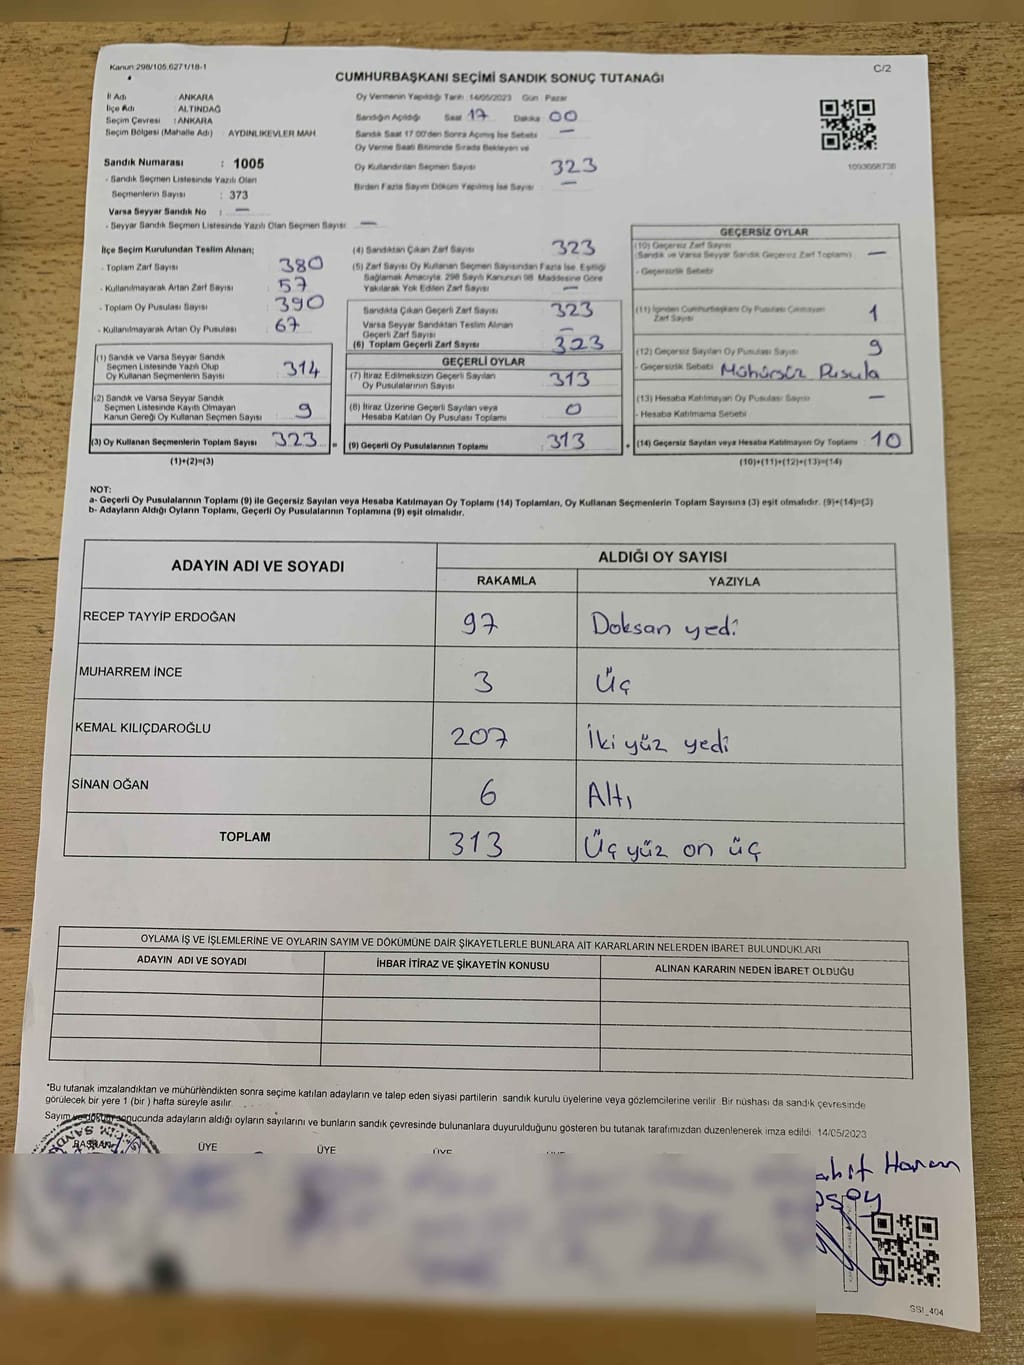 Kanun:298/105,6271/18-1
C/2
CUMHURBAŞKANI SEÇİMİ SANDIK SONUÇ TUTANAĞI
İl Adı : ANKARA
İlçe Adı : ALTINDAĞ
Seçim Çevresi : ANKARA
Seçim Bölgesi (Mahalle Adı) : AYDINLIKEVLER MAH.
Sandık Numarası : 1005
- Sandık Seçmen Listesinde Yazılı Olan
Seçmenlerin Sayısı : 373
Varsa Seyyar Sandık No : —
- Seyyar Sandık Seçmen Listesinde Yazılı Olan Seçmen Sayısı : —
Oy Vermenin Yapıldığı Tarih: 14/05/2023 Gün : Pazar
Sandığın Açıldığı Saat 17 Dakika 00
Sandık Saat 17:00'den Sonra Açılmış İse Sebebi —
Oy Verme Saati Bitiminde Sırada Bekleyen ve
Oy Kullandırılan Seçmen Sayısı 323
Birden Fazla Sayım Döküm Yapılmış İse Sayısı : —
1093668736
İlçe Seçim Kurulundan Teslim Alınan;
- Toplam Zarf Sayısı 380
- Kullanılmayarak Artan Zarf Sayısı : 57
- Toplam Oy Pusulası Sayısı 390
- Kullanılmayarak Artan Oy Pusulası : 67
(1) Sandık ve Varsa Seyyar Sandık
Seçmen Listesinde Yazılı Olup
Oy Kullanan Seçmenlerin Sayısı 314
(2) Sandık ve Varsa Seyyar Sandık
Seçmen Listesinde Kayıtlı Olmayan
Kanun Gereği Oy Kullanan Seçmen Sayısı 9
(3) Oy Kullanan Seçmenlerin Toplam Sayısı 323 =
(1)+(2)=(3)
(4) Sandıktan Çıkan Zarf Sayısı : 323
(5) Zarf Sayısı Oy Kullanan Seçmen Sayısından Fazla İse, Eşitliği
Sağlamak Amacıyla, 298 Sayılı Kanunun 98. Maddesine Göre
Yakılarak Yok Edilen Zarf Sayısı : —
Sandıkta Çıkan Geçerli Zarf Sayısı : 323
Varsa Seyyar Sandıktan Teslim Alınan
Geçerli Zarf Sayısı : —
(6) Toplam Geçerli Zarf Sayısı 323
GEÇERLİ OYLAR
(7) İtiraz Edilmeksizin Geçerli Sayılan
Oy Pusulalarının Sayısı 313
(8) İtiraz Üzerine Geçerli Sayılan veya
Hesaba Katılan Oy Pusulası Toplamı 0
(9) Geçerli Oy Pusulalarının Toplamı 313 +
GEÇERSİZ OYLAR
(10) Geçersiz Zarf Sayısı
(Sandık ve Varsa Seyyar Sandık Geçersiz Zarf Toplamı) : —
- Geçersizlik Sebebi
(11) İçinden Cumhurbaşkanı Oy Pusulası Çıkmayan
Zarf Sayısı : 1
(12) Geçersiz Sayılan Oy Pusulası Sayısı : 9
- Geçersizlik Sebebi Mühürsüz Pusula
(13) Hesaba Katılmayan Oy Pusulası Sayısı —
- Hesaba Katılmama Sebebi
(14) Geçersiz Sayılan veya Hesaba Katılmayan Oy Toplamı : 10
(10)+(11)+(12)+(13)=(14)
NOT:
a- Geçerli Oy Pusulalarının Toplamı (9) ile Geçersiz Sayılan veya Hesaba Katılmayan Oy Toplamı (14) Toplamları, Oy Kullanan Seçmenlerin Toplam Sayısına (3) eşit olmalıdır. (9)+(14)=(3)
b- Adayların Aldığı Oyların Toplamı, Geçerli Oy Pusulalarının Toplamına (9) eşit olmalıdır.
ADAYIN ADI VE SOYADI
ALDIĞI OY SAYISI
RAKAMLA YAZIYLA
RECEP TAYYİP ERDOĞAN 97 Doksan yedi
MUHARREM İNCE 3 Üç
KEMAL KILIÇDAROĞLU 207 İki yüz yedi
SİNAN OĞAN 6 Altı
TOPLAM 313 Üç yüz on üç
OYLAMA İŞ VE İŞLEMLERİNE VE OYLARIN SAYIM VE DÖKÜMÜNE DAİR ŞİKAYETLERLE BUNLARA AİT KARARLARIN NELERDEN İBARET BULUNDUKLARI
ADAYIN ADI VE SOYADI İHBAR İTİRAZ VE ŞİKAYETİN KONUSU ALINAN KARARIN NEDEN İBARET OLDUĞU
*Bu tutanak imzalandıktan ve mühürlendikten sonra seçime katılan adayların ve talep eden siyasi partilerin sandık kurulu üyelerine veya gözlemcilerine verilir. Bir nüshası da sandık çevresinde
görülecek bir yere 1 (bir ) hafta süreyle asılır.
Sayım ve döküm sonucunda adayların aldığı oyların sayılarını ve bunların sandık çevresinde bulunanlara duyurulduğunu gösteren bu tutanak tarafımızdan düzenlenerek imza edildi. 14/05/2023
BAŞKAN ÜYE ÜYE ÜYE ÜYE
Hanım
SSI_404